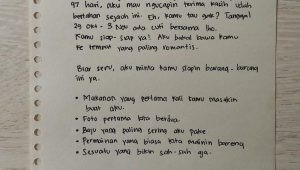 97 hari, aku mau ngucapin terima kasih udah
bertahan sejauh ini. Eh, kamu tau gak? Tanggal
29 okt - 3 Nov ada cuti bersama lho.
Kamu siap-siap ya! Aku bakal bawa kamu
ke tempat yang paling romantis.
Biar seru, aku minta kamu siapin barang-barang
ini ya.
• Makanan yang pertama kali kamu masakin
buat aku.
• Foto pertama kita berdua.
• Baju yang paling sering aku pake
• Permainan yang biasa kita mainin bareng.
• Sesuatu yang bikin sah-sah aja.